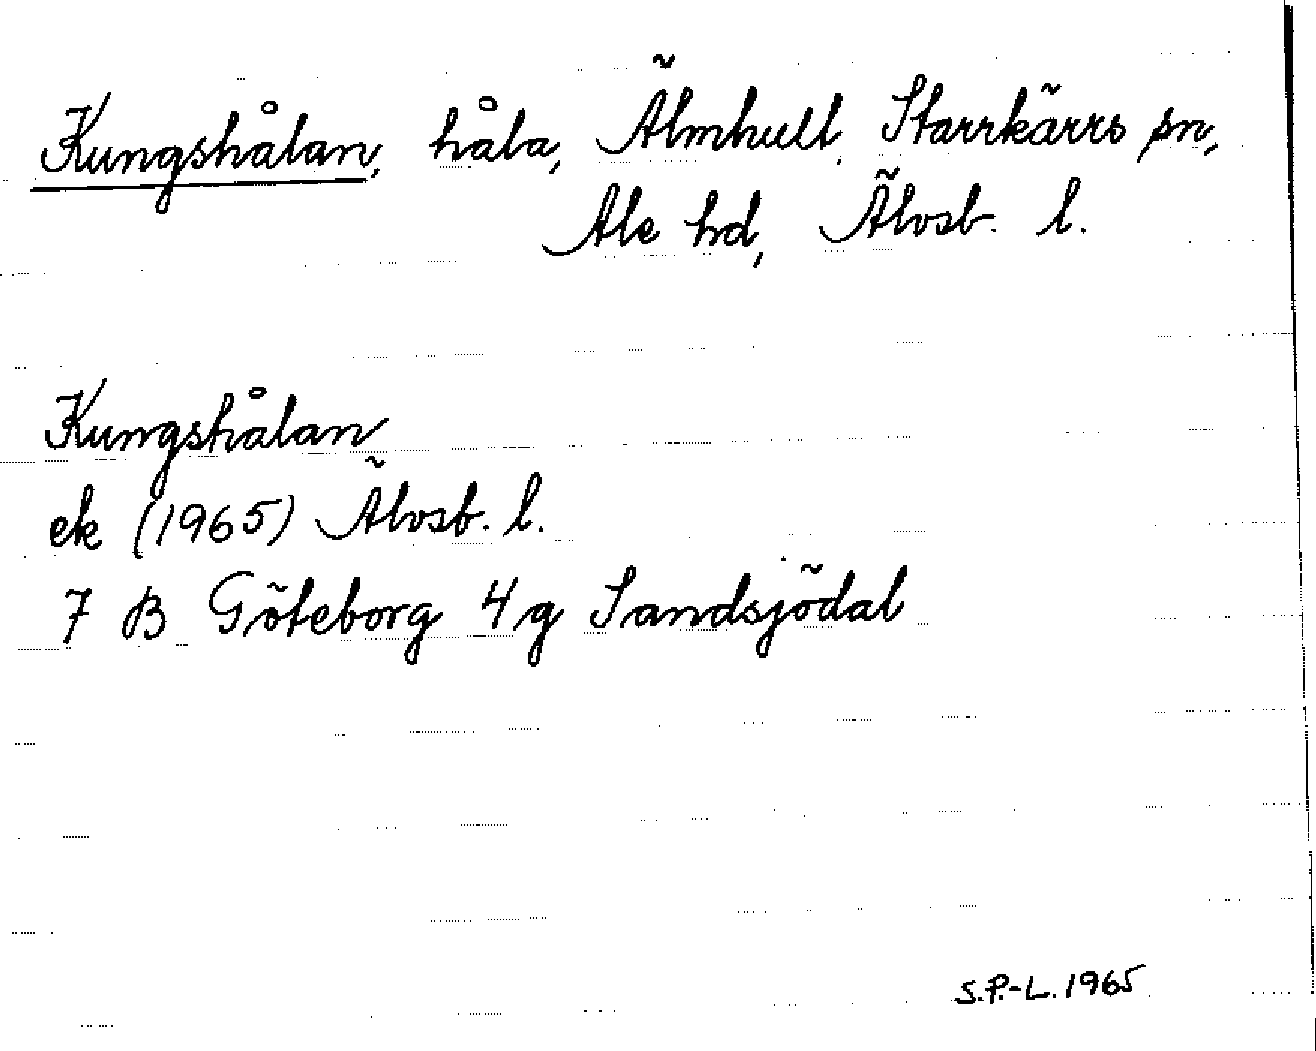 Kungshålan, håla, Älmhult, Starrkärrs sn,
Ale hd, Älvsb. l.
Kungshålan
ek (1965) Älvsb. l.
7 B Göteborg 4 g Sandsjödal
S.P.-L. 1965